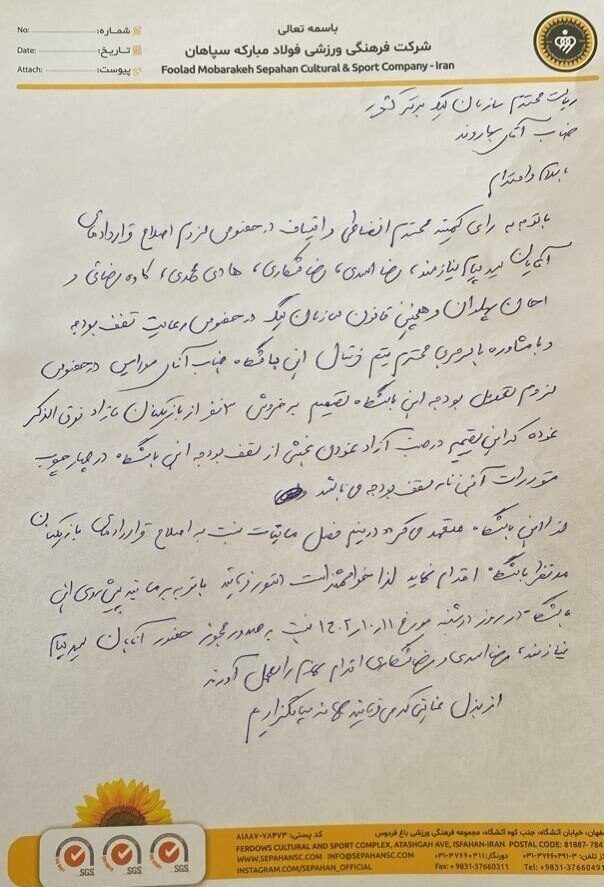 باسمه تعالی
شرکت فرهنگی ورزشی فولاد مبارکه سپاهان
Foolad Mobarakeh Sepahan Cultural & Sport Company - Iran
No: شماره:
Date: تاریخ:
Attach: پیوست:
ریاست محترم سازمان لیگ برتر کشور
جناب آقای سهاروند
با سلام و احترام
با توجه به رای کمیته محترم انضباطی و اتیاف در خصوص لزوم اصلاح قراردادهای
آقایان سید پیام نیازمند، رضا اسدی، رضا شکاری، هادی محمدی، کاوه رضائی و
احسان پهلوان و همچنین قانون سازمان لیگ در خصوص رعایت سقف بودجه
و با مشاوره با سرمربی محترم تیم فوتبال این باشگاه جناب آقای مورایس در خصوص
لزوم تعدیل بودجه این باشگاه تصمیم به فروش ۳ نفر از بازیکنان مازاد فوق الذکر
نموده که این تصمیم درصدد آزاد نمودن بخشی از سقف بودجه این باشگاه در چهارچوب
مقررات آئین نامه سقف بودجه می باشد
لذا این باشگاه متعهد می گردد در نیم فصل مابقی نسبت به اصلاح قراردادهای بازیکنان
مدنظر باشگاه اقدام نماید لذا خواهشمند است دستور فرمائید با توجه به برنامه پیش روی این
باشگاه در روز دوشنبه مورخ ۱۴۰۲/۱۰/۱۱ نسبت به صدور مجوز حضور آقایان سید پیام
نیازمند، رضا اسدی و رضا شکاری اقدام لازم را بعمل آورند
از بذل عنایتی که می فرمائید سپاسگزاریم
اصفهان، خیابان آتشگاه، جنب کوه آتشگاه، مجموعه فرهنگی ورزشی باغ فردوس کد پستی: ۸۱۸۸۷-۷۸۴۷۳
FERDOWS CULTURAL AND SPORT COMPLEX, ATASHGAH AVE, ISFAHAN-IRAN POSTAL CODE: 81887-784
WWW.SEPAHANSC.COM INFO@SEPAHANSC.COM دورنگار: ۰۳۱-۳۷۶۶۰۳۱۱ تلفن: ۳-۰۳۱-۳۷۶۶۰۴۹۱
INSTAGRAM.COM/SEPAHAN_OFFICIAL Fax: +9831-37660311 Tel: +9831-3766049
SGS
SGS
SGS